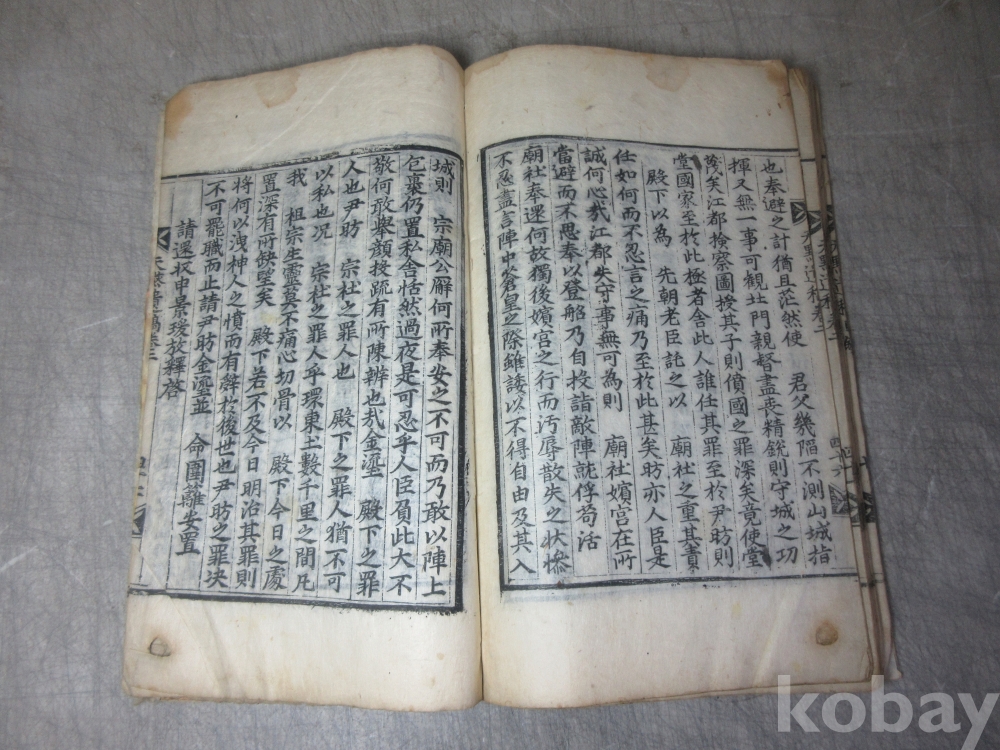 也奉避之計猶且茫然使 君父幾陷不測山城指
揮又無一事可觀北門親督盡喪精銳則守城之功
蔑矣江都檢察圖授其子則僨國之罪深矣竟使堂
堂國家至於此極者舍此人誰任其罪至於尹昉則
殿下以為 先朝老臣託之以 廟社之重其責
任如何而不忍言之痛乃至於此甚矣昉亦人臣是
誠何心哉江都失守事無可為則 廟社嬪宮在所
當避而不思奉以登船乃自投詣敵陣就俘苟活
廟社奉還何故獨後嬪宮之行而汚辱散失之狀慘
不忍盡言陣中蒼皇之際雖諉以不得自由及其入
城則 宗廟公廨何所奉安之不可而乃敢以陣上
包裹仍置私舍恬然過夜是可忍乎人臣負此大不
敬何敢舉顔投疏有所陳辨也哉金瑬 殿下之罪
人也尹昉 宗社之罪人也 殿下之罪人猶不可
以私也况 宗社之罪人乎環東土數千里之間凡
我 祖宗生靈莫不痛心切骨以 殿下今日之處
置深有所缺望矣 殿下若不及今日明治其罪則
將何以洩神人之憤而有辭於後世也尹昉之罪决
不可罷職而止請尹昉金瑬並 命圍籬安置
請還收申景瑗放釋啓
卷三
kobay